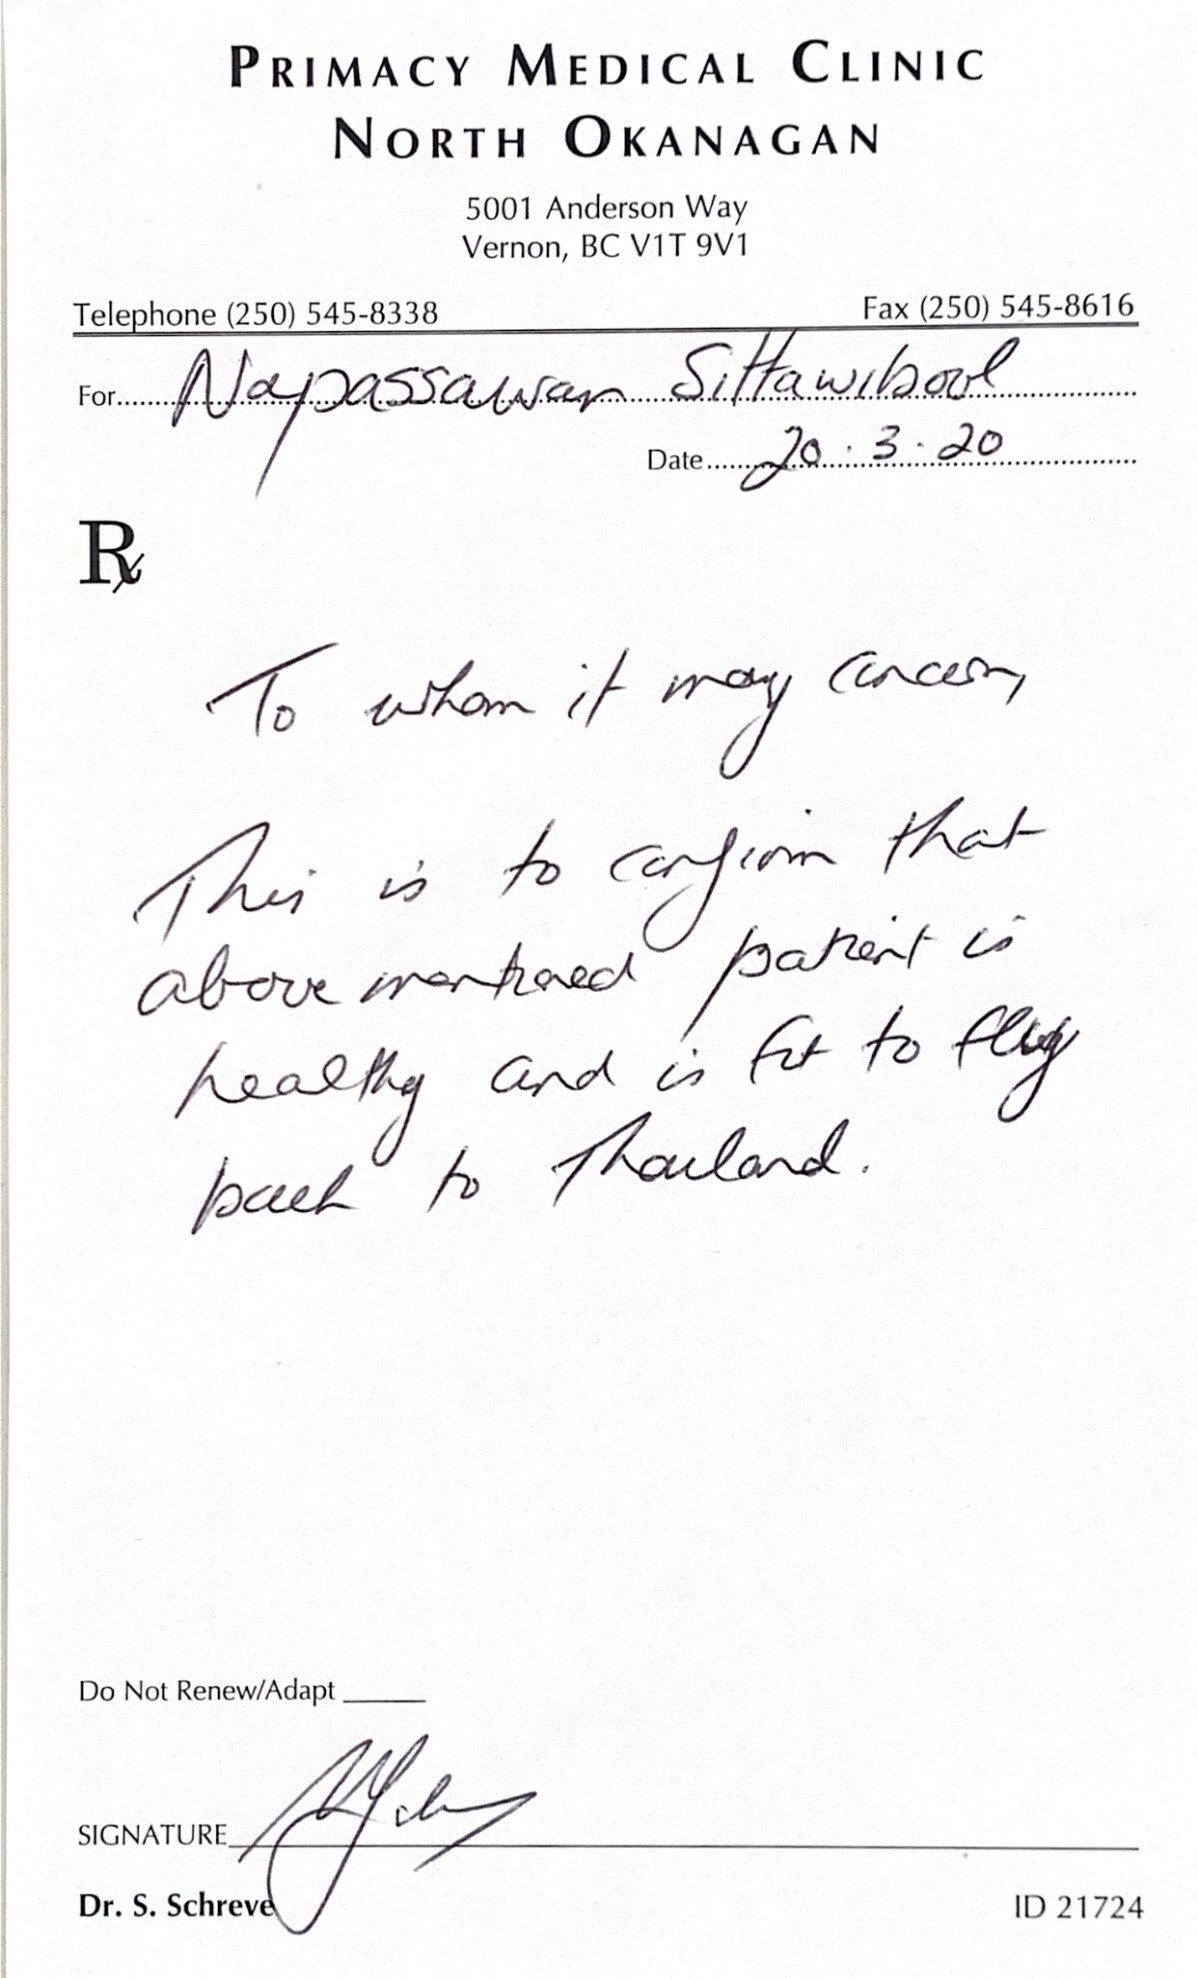 PRIMACY MEDICAL CLINIC
NORTH OKANAGAN
5001 Anderson Way
Vernon, BC V1T 9V1
Telephone (250) 545-8338 Fax (250) 545-8616
For Napassawan Sittawibool
Date 20.3.20
Rx
To whom it may concern,
This is to confirm that
above mentioned patient is
healthy and is fit to fly
back to Thailand.
Do Not Renew/Adapt
SIGNATURE
Dr. S. Schreve ID 21724